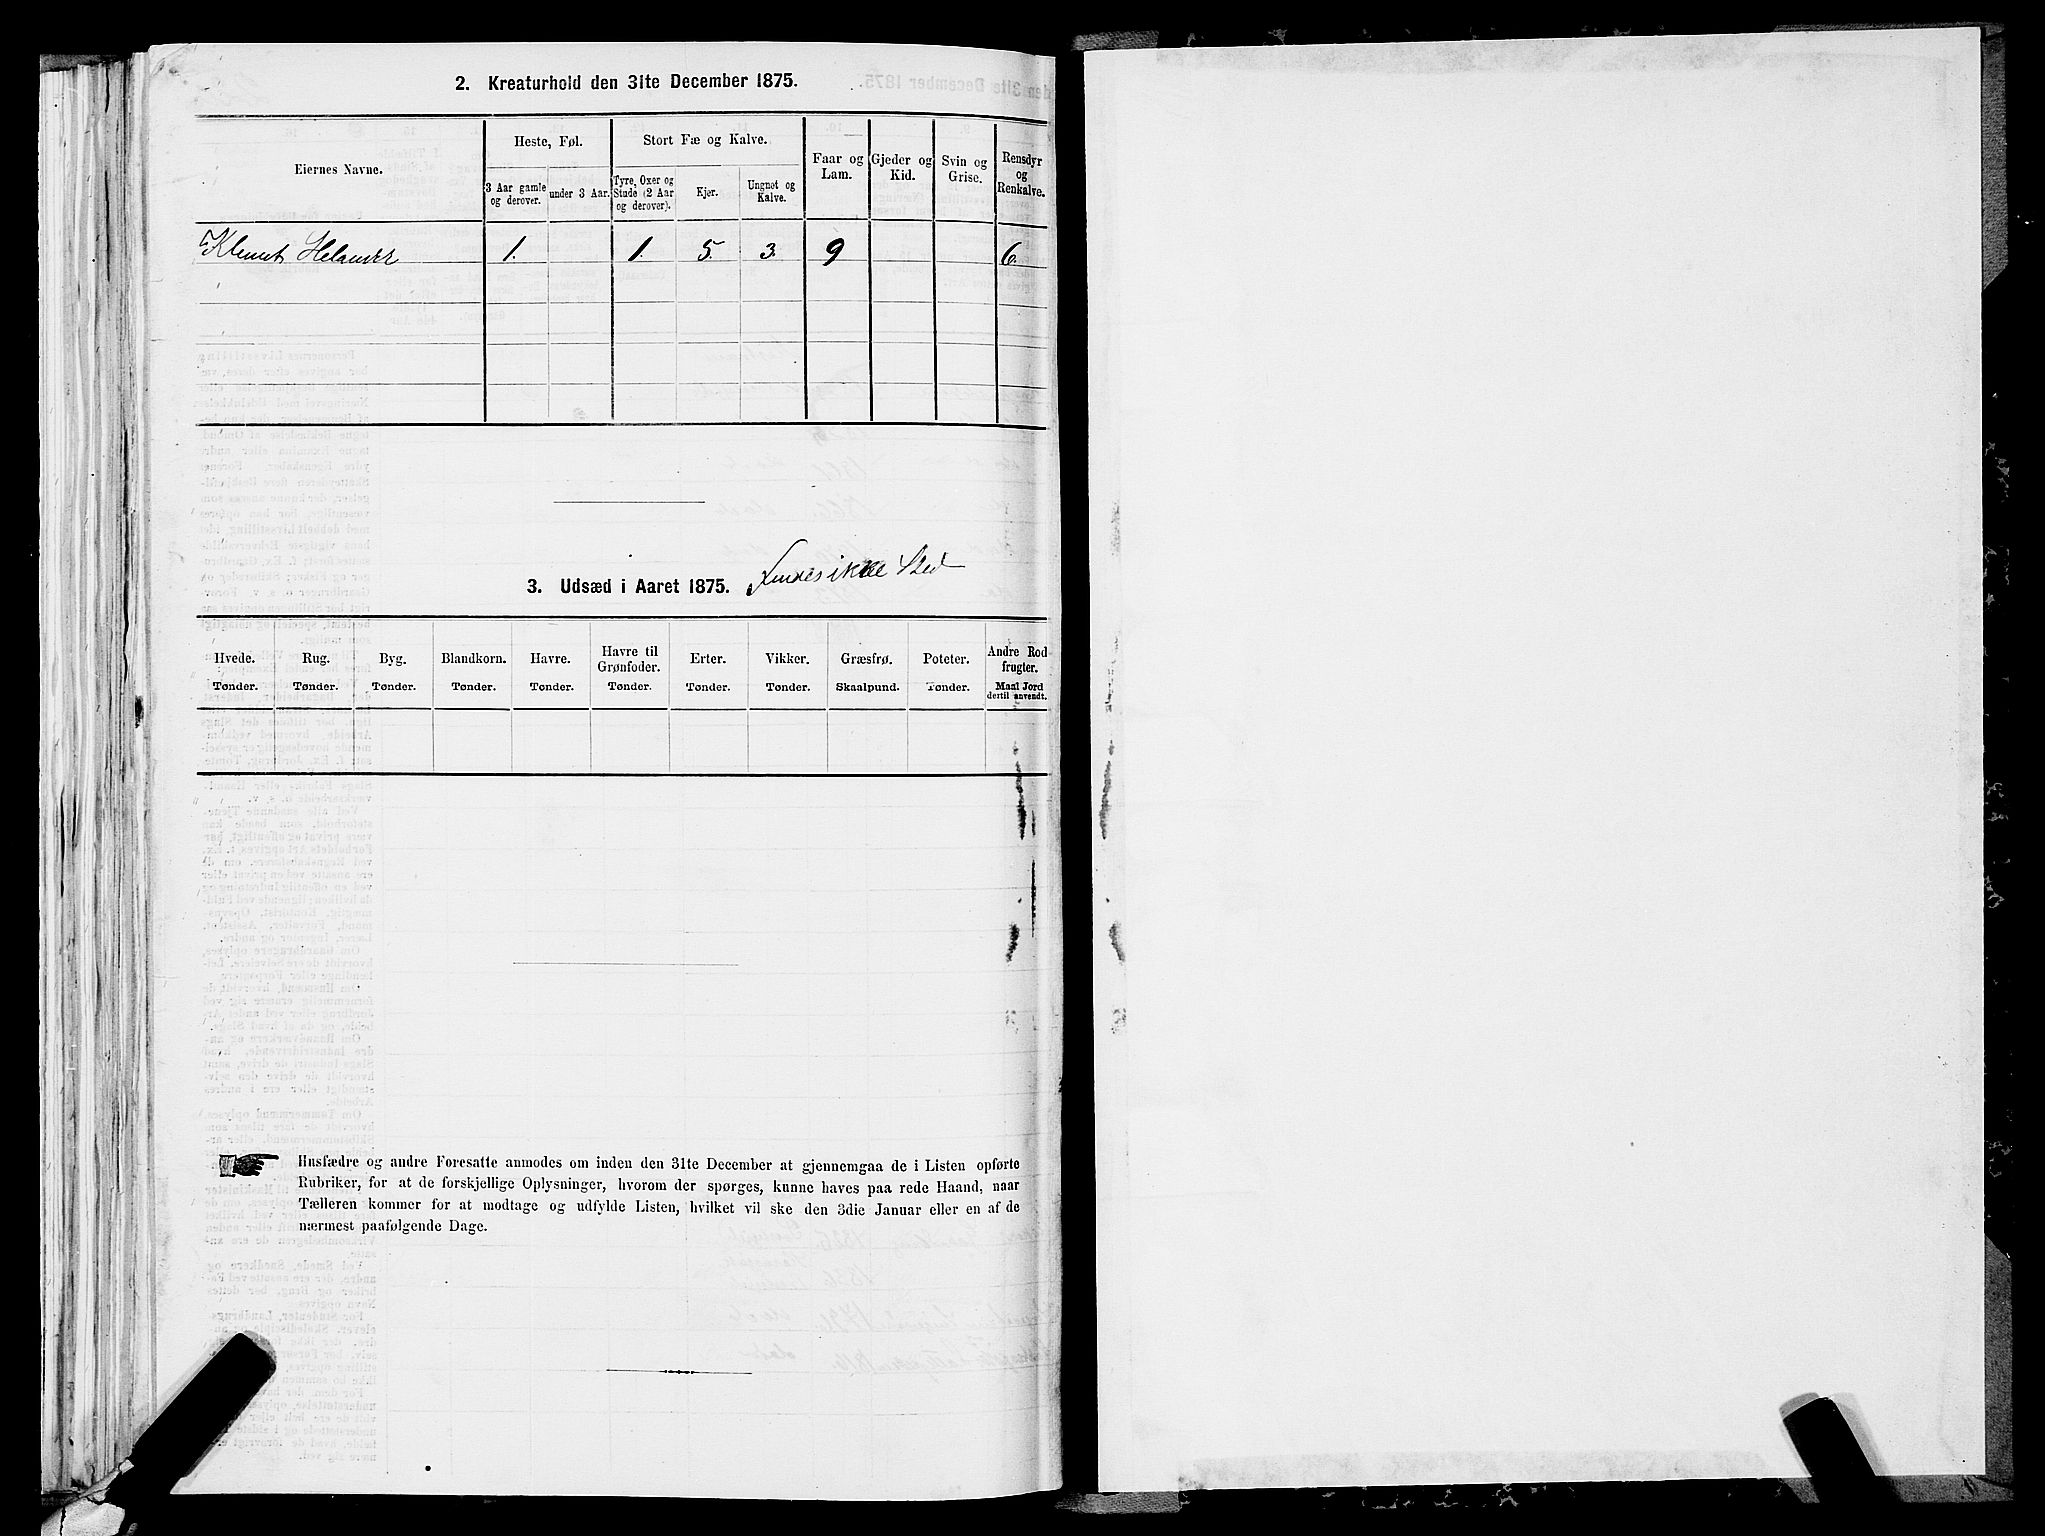 2. Kreaturhold den 31te December 1875.
Eiernes Navne.
Heste, Føl.
3 Aar gamle og derover.
under 3 Aar.
Stort Fæ og Kalve.
Tyre, Oxer og Stude (2 Aar og derover).
Kjør.
Ungnøt og Kalve.
Faar og Lam.
Gjeder og Kid.
Svin og Grise.
Rensdyr og Renkalve.
Klemet Helander 1. 1. 5. 3. 9 6.
3. Udsæd i Aaret 1875. Findes ikke Sted
Hvede. Tønder.
Rug. Tønder.
Byg. Tønder.
Blandkorn. Tønder.
Havre. Tønder.
Havre til Grønfoder. Tønder.
Erter. Tønder.
Vikker. Tønder.
Græsfrø. Skaalpund.
Poteter. Tønder.
Andre Rodfrugter. Maal Jord dertil anvendt.
Husfædre og andre Foresatte anmodes om inden den 31te December at gjennemgaa de i Listen opførte
Rubriker, for at de forskjellige Oplysninger, hvorom der spørges, kunne haves paa rede Haand, naar
Tælleren kommer for at modtage og udfylde Listen, hvilket vil ske den 3die Januar eller en af de
nærmest paafølgende Dage.